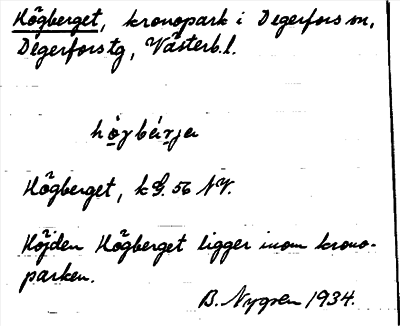 Högberget, kronopark i Degerfors sn,
Degerfors tg, Västerb. l.
Högberget, kG. 56 NV.
Höjden Högberget ligger inom krono-
parken.
B. Nygren 1934.